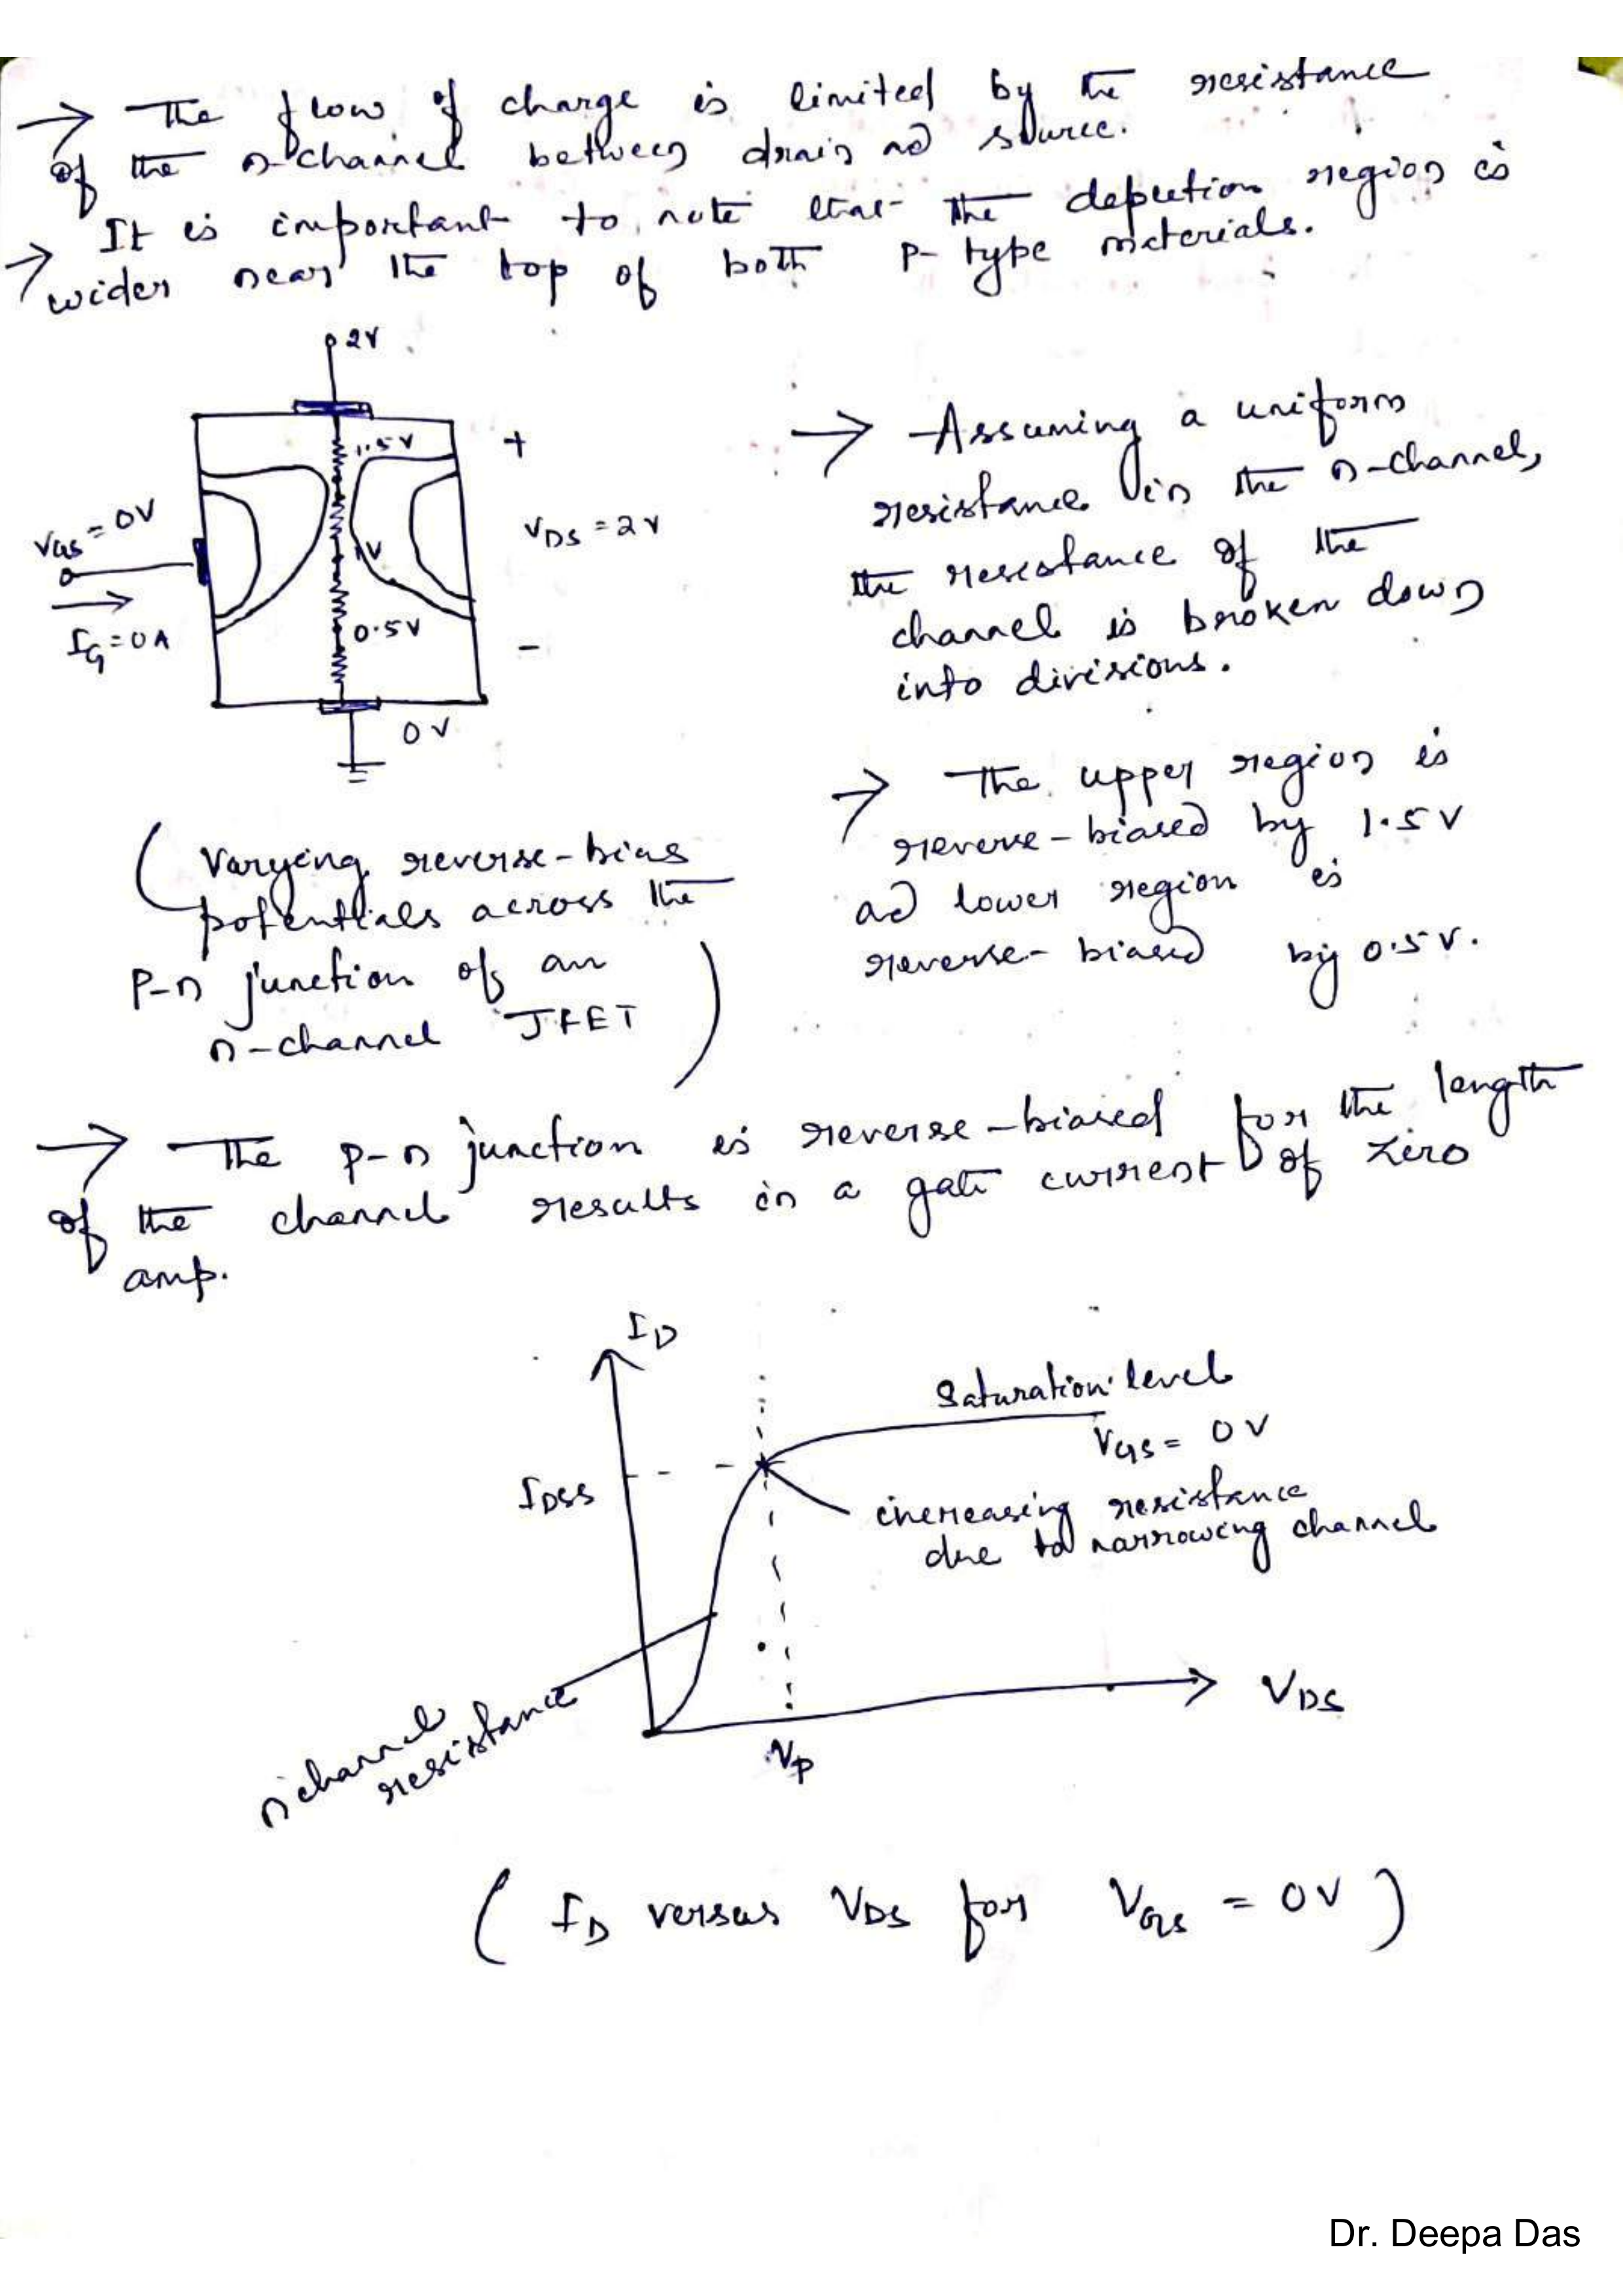 → The flow of charge is limited by the resistance
of the n-channel between drain ad source.
→ It is important to note that the depletion region is
wider near the top of both P-type materials.
2V
1.5V
+
VGS = 0V
VDS = 2V
1V
IG = 0A
0.5V
-
0V
(Varying reverse-bias
potentials across the
P-n junction of an
n-channel JFET)
→ Assuming a uniform
resistance in the n-channel,
the resistance of the
channel is broken down
into divisions.
→ The upper region is
reverse-biased by 1.5V
ad lower region is
reverse-biased by 0.5V.
→ The p-n junction is reverse-biased for the length
of the channel results in a gate current of zero
amp.
ID
Saturation level
VGS = 0V
IDSS
increasing resistance
due to narrowing channel
n channel
resistance
VDS
VP
(ID versus VDS for VGS = 0V)
Dr. Deepa Das